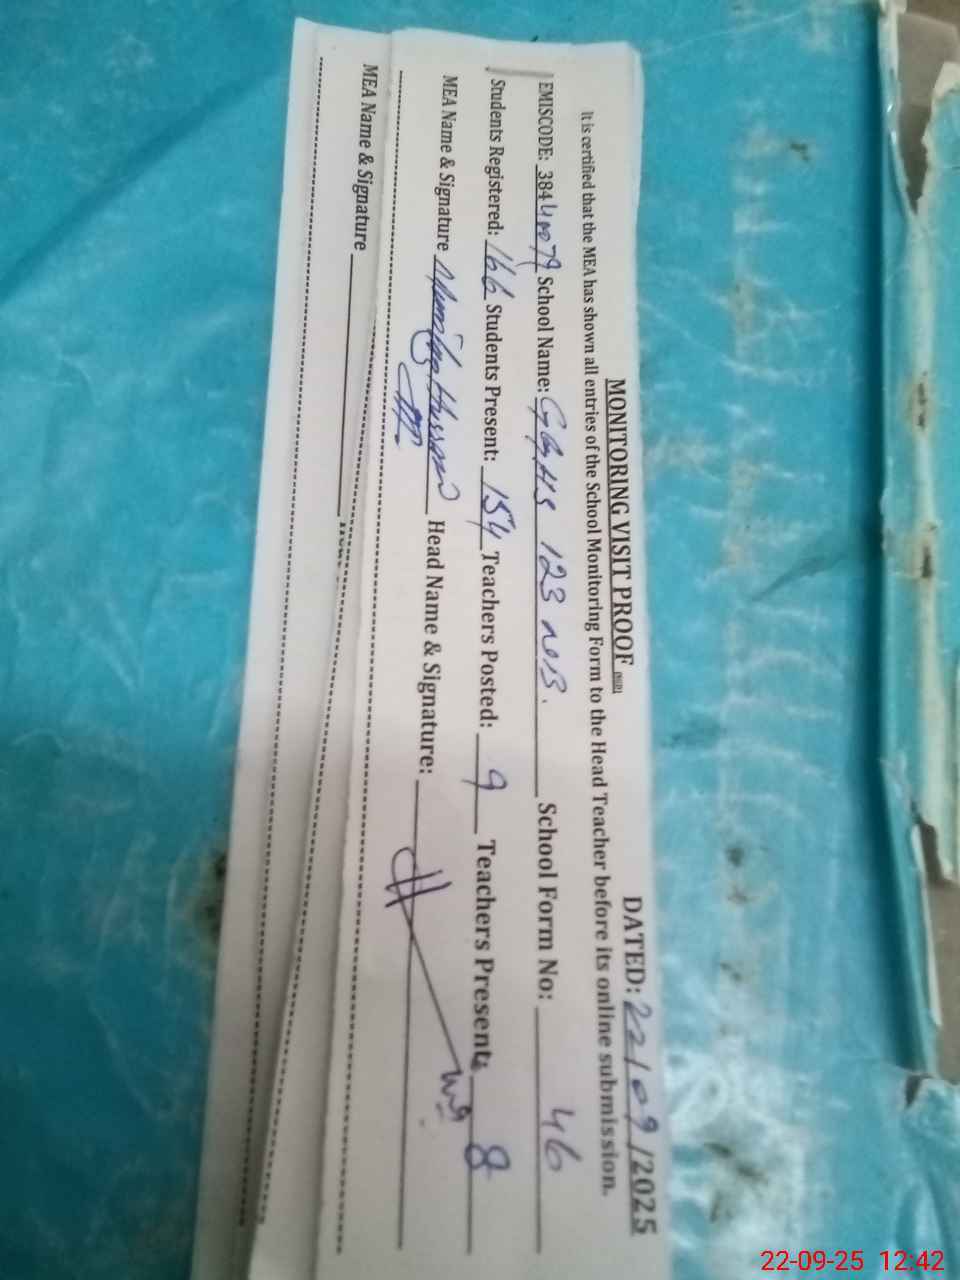 MONITORING VISIT PROOF DATED: 22/09/2025
It is certified that the MEA has shown all entries of the School Monitoring Form to the Head Teacher before its online submission.
EMISCODE: 38440079 School Name: GGHS 123 NB. School Form No: 46
Students Registered: 166 Students Present: 154 Teachers Posted: 9 Teachers Present: 8
MEA Name & Signature Hussain Head Name & Signature:
MEA Name & Signature
22-09-25 12:42